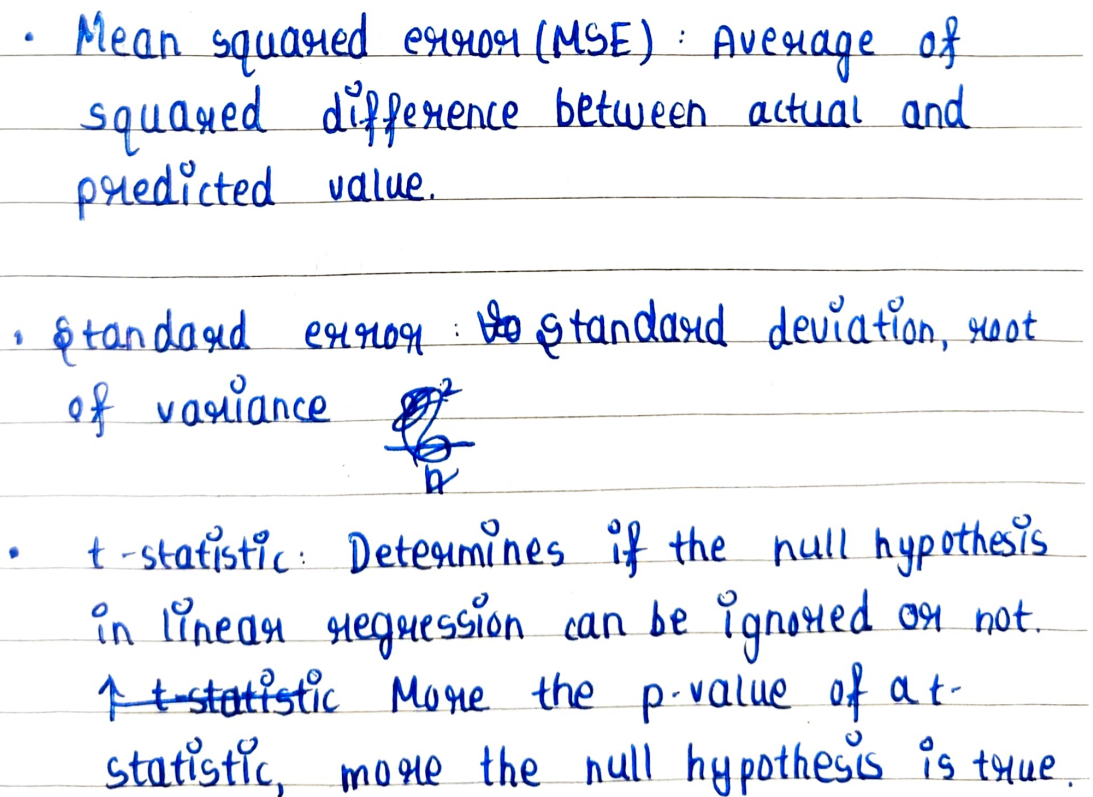 • Mean squared error (MSE) : Average of
squared difference between actual and
predicted value.
• Standard error : Standard deviation, root
of variance
• t-statistic: Determines if the null hypothesis
in linear regression can be ignored or not.
↑ t-statistic More the p-value of a t-
statistic, more the null hypothesis is true.